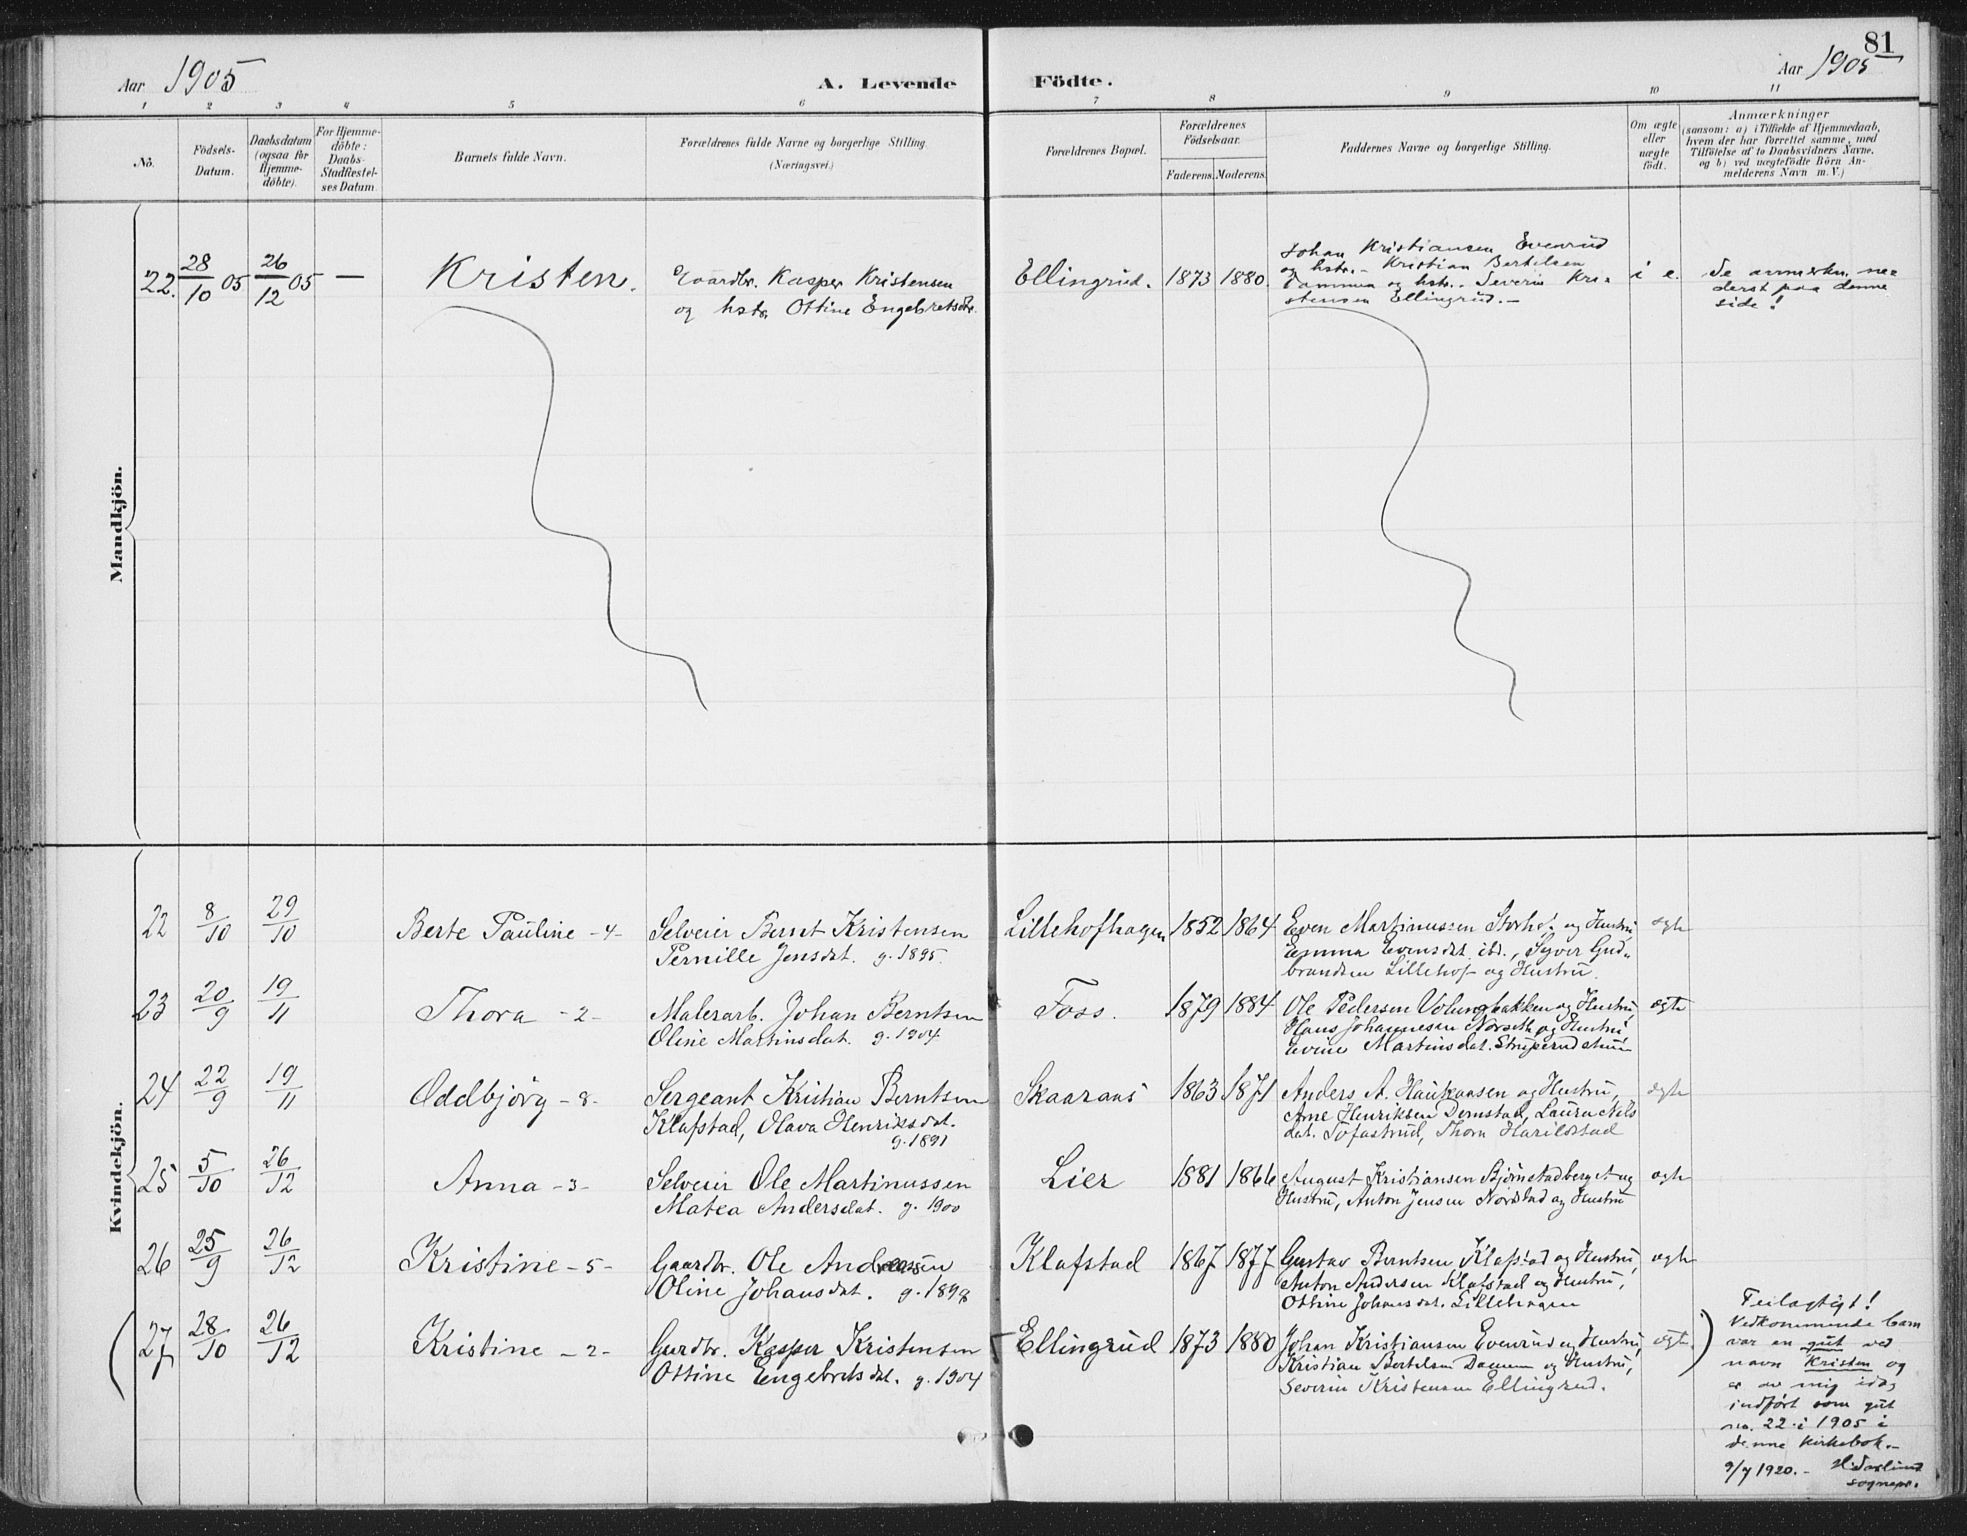 81
Aar 1905
A. Levende
Födte.
Aar 1905
1 2 3 4 5 6 7 8 9 10 11
No.
Födsels-
Datum.
Daabsdatum
(ogsaa for
Hjemme-
döbte).
For Hjemme-
döbte:
Daabs-
Stadfæstel-
ses Datum.
Barnets fulde Navn.
Forældrenes fulde Navne og borgerlige Stilling
(Næringsvei.)
Forældrenes Bopæl.
Forældrenes
Födselsaar.
Faderens. Moderens.
Faddernes Navne og borgerlige Stilling.
Om ægte
eller
uægte
födt.
Anmærkninger
(saasom: a) i Tilfælde af Hjemmedaab,
hvem der har forrettet samme, med
Tilföielse af to Daabsvidners Navne,
og b) ved uægtefödte Börn An-
melderens Navn m. V.)
Mandkjön.
22. 28/10 05 26/12 05 — Kristen.
Gaardbr. Kasper Kristensen
og hstr. Ottine Engebretsdtr.
Ellingrud. 1873 1880.
Johan Kristiansen Evenrud
og hstr. - Kristian Bertelsen
og hstr. - Severin Kri=
stensen Ellingrud. -
i e.
Se anmerkn. ne=
derst paa denne
side!
Kvindekjön.
22 8/10 29/10 Berte Pauline - 4 -
Selveier Bernt Kristensen
Pernille Jensdat. g. 1895.
Lillehofhagen 1852 1864
Even Martinussen Storhof og Hustru,
Emma Evensdat. ibd., Syver Gud-
brandsen Lillehof og Hustru.
ægte
23 20/9 19/11 Thora - 2 -
Malerarb. Johan Berntsen
Oline Martinsdat. g. 1904
Foss. 1879 1884
Ole Pedersen Volungbakken og Hustru,
Hans Johannesen Norseth og Hustru,
Evine Martinsdat.
ægte
24 22/9 19/11 Oddbjörg - 8 -
Sergeant Kristian Berntsen
Klafstad, Olava Henriksdat.
g. 1891
Skaaraas 1863 1871
Anders A. Haukaasen og Hustru,
Arne Henriksen Laura Nils
dat. Tofastrud, Thora
ægte
25 5/10 26/12 Anna - 3 -
Selveier Ole Martinussen
Matea Andersdat. g. 1900
Lier 1881 1866
August Kristiansen Björnstadberget og
Hustru, Anton Jensen Nordstad og Hustru
ægte
26 25/9 26/12 Kristine - 5 -
Gaardbr. Ole Andreassen
Oline Johansdat. g. 1898
Klafstad 1867 1877
Gustav Berntsen Klafstad og Hustru,
Anton Andersen Klafstad og Hustru,
Ottine Johansdat. Lillehagen
ægte
27 28/10 26/12 Kristine - 2 -
Gardbr. Kasper Kristensen
Ottine Engebretsdat. g. 1904
Ellingrud 1873 1880
Johan Kristiansen Evenrud og Hustru,
Kristian Bertelsen og Hustru,
Severin Kristensen Ellingrud.
ægte
Feilagtigt!
Vedkommende barn
var en gut ved
navn Kristen og
er av mig idag
indført som gut
no. 22 i 1905 i
denne kirkebok. -
9/7 1920. -
sognepr.